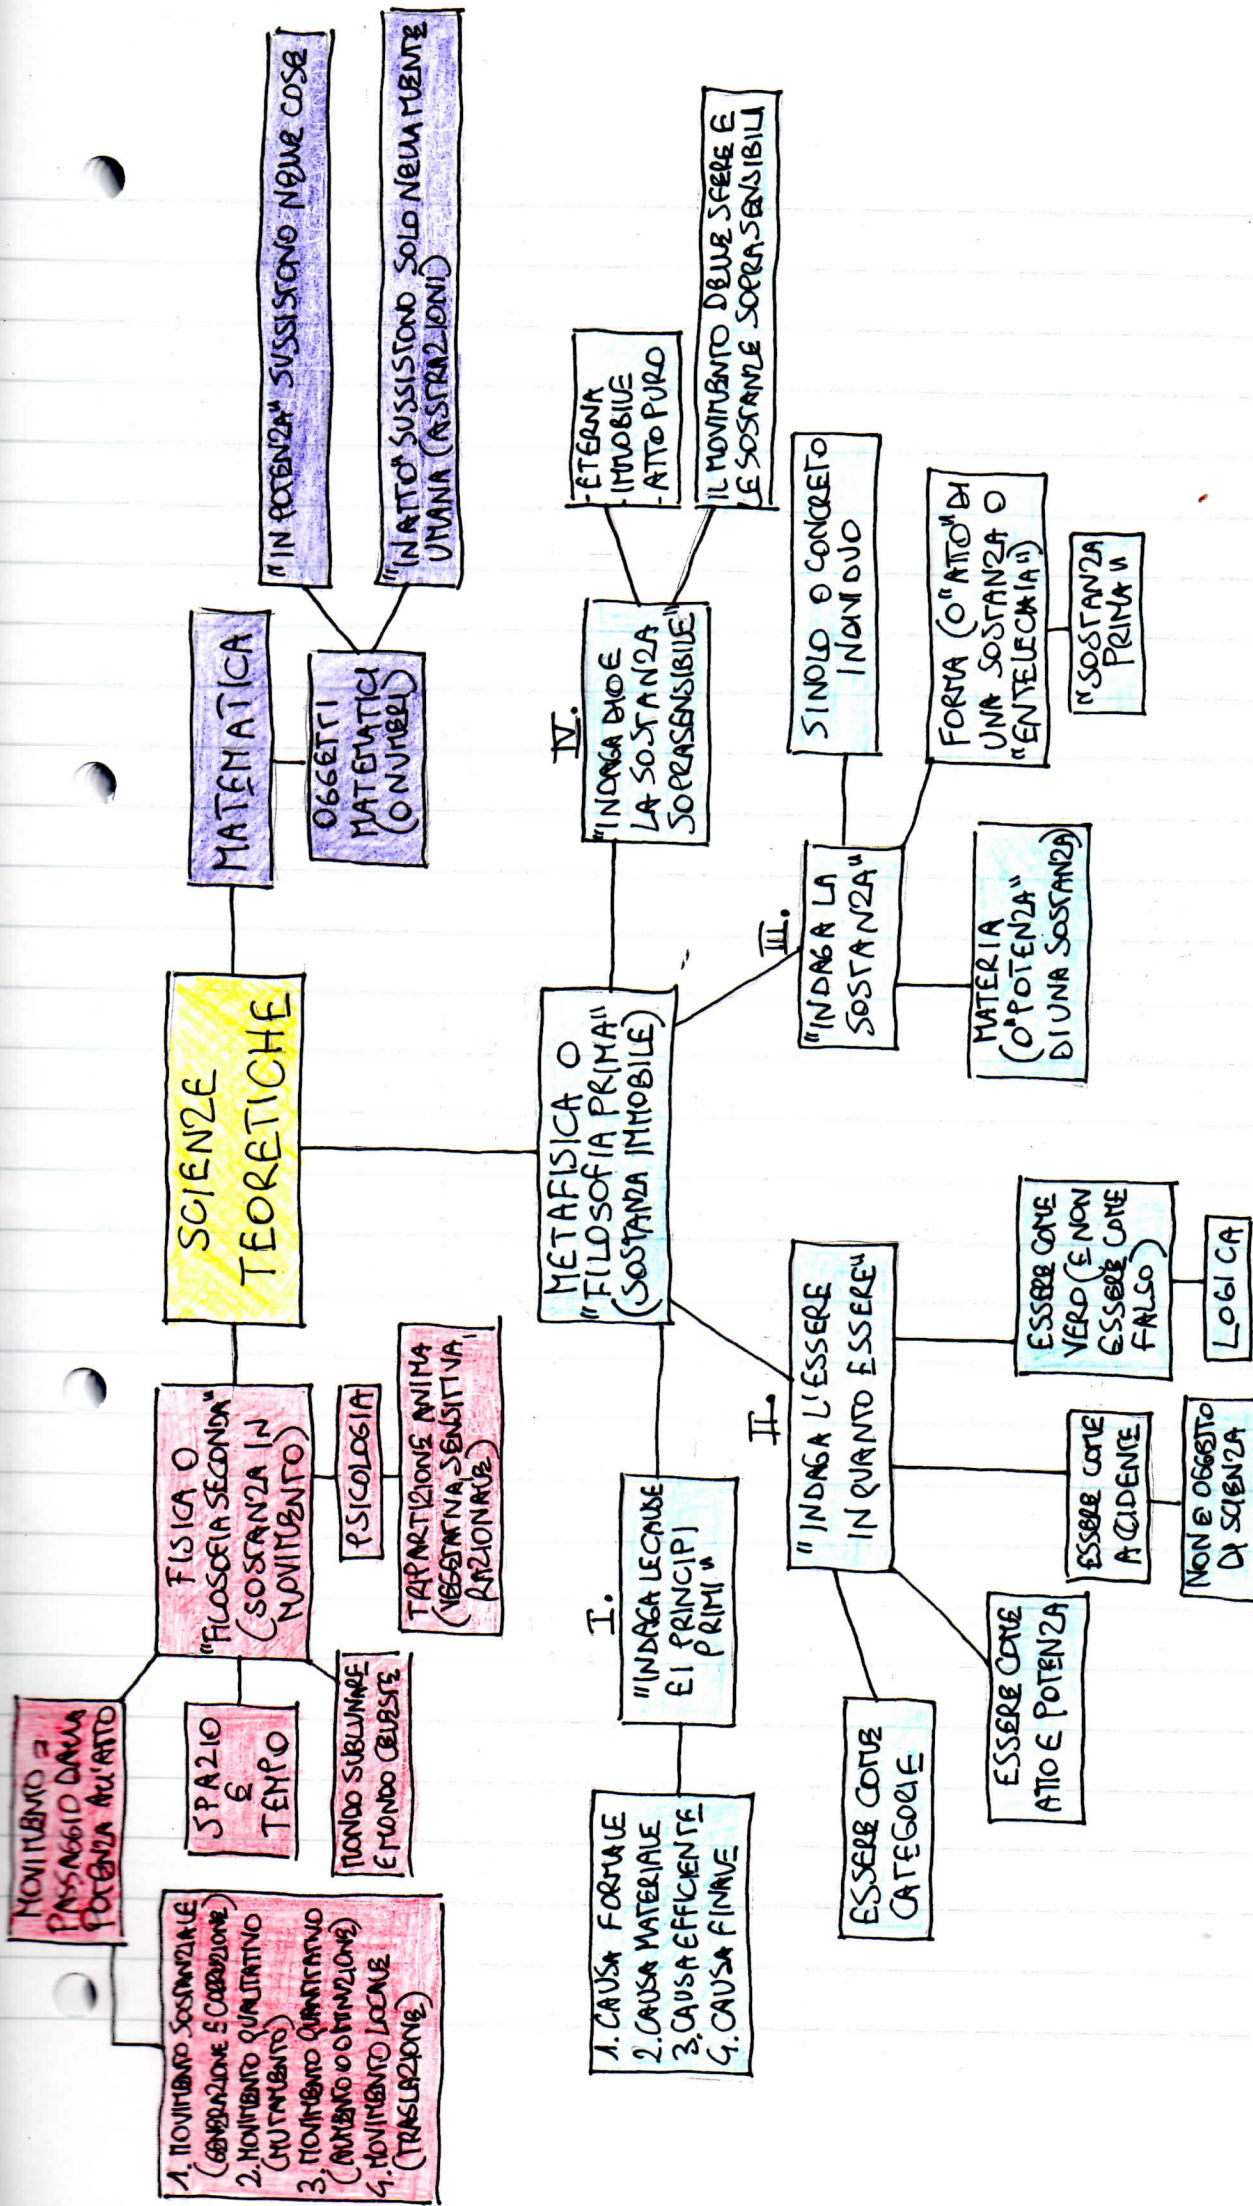 SCIENZE
TEORETICHE
FISICA O
"FILOSOFIA SECONDA"
(SOSTANZA IN
MOVIMENTO)
MOVIMENTO =
PASSAGGIO DALLA
POTENZA ALL'ATTO
1. MOVIMENTO SOSTANZIALE
(GENERAZIONE E CORRUZIONE)
2. MOVIMENTO QUALITATIVO
(MUTAMENTO)
3. MOVIMENTO QUANTITATIVO
(AUMENTO O DIMINUZIONE)
4. MOVIMENTO LOCALE
(TRASLAZIONE)
SPAZIO
E
TEMPO
MONDO SUBLUNARE
E MONDO CELESTE
PSICOLOGIA
TRIPARTIZIONE ANIMA
(VEGETATIVA, SENSITIVA,
RAZIONALE)
MATEMATICA
OGGETTI
MATEMATICI
(O NUMERI)
"IN POTENZA" SUSSISTONO NELLE COSE
"IN ATTO" SUSSISTONO SOLO NELLA MENTE
UMANA (ASTRAZIONI)
METAFISICA O
"FILOSOFIA PRIMA"
(SOSTANZA IMMOBILE)
I.
"INDAGA LE CAUSE
E I PRINCIPI
PRIMI"
1. CAUSA FORMALE
2. CAUSA MATERIALE
3. CAUSA EFFICIENTE
4. CAUSA FINALE
II.
"INDAGA L'ESSERE
IN QUANTO ESSERE"
ESSERE COME
CATEGORIE
ESSERE COME
ATTO E POTENZA
ESSERE COME
ACCIDENTE
NON E OGGETTO
DI SCIENZA
ESSERE COME
VERO (E NON
ESSERE COME
FALSO)
LOGICA
III.
"INDAGA LA
SOSTANZA"
MATERIA
(O "POTENZA"
DI UNA SOSTANZA)
SINOLO O CONCRETO
INDIVIDUO
FORMA (O "ATTO" DI
UNA SOSTANZA O
"ENTELECHIA")
"SOSTANZA
PRIMA"
IV.
"INDAGA DIO E
LA SOSTANZA
SOPRASENSIBILE"
- ETERNA
- IMMOBILE
- ATTO PURO
IL MOVIMENTO DELLE SFERE E
LE SOSTANZE SOPRASENSIBILI